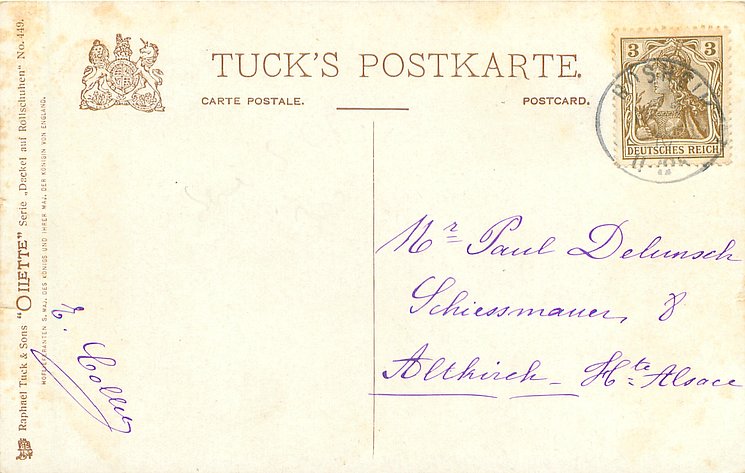 TUCK'S POSTKARTE.
CARTE POSTALE.
POSTCARD.
3 3
DEUTSCHES REICH
ROSHEIM
Mr Paul Delunsch
Schiessmauer, 8
Altkirch - Hte Alsace
Raphael Tuck & Sons "OILETTE" Serie „Dackel auf Rollschuhen" No. 449.
HOFLIEFERANTEN S. MAJ. DES KÖNIGS UND IHRER MAJ. DER KÖNIGIN VON ENGLAND.